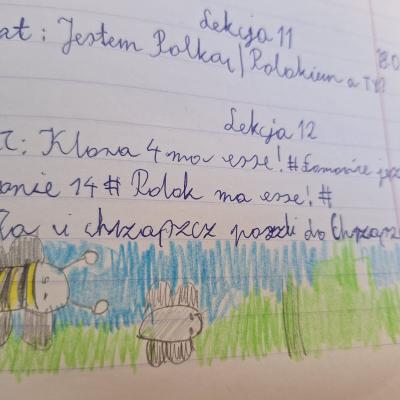 Lekcja 11
at: Jestem Polką/Polakiem a Ty?
Lekcja 12
t: Klasa 4 ma esse! #Łamanie
anie 14# Polak ma esse! #
i chrząszcz poszli do Chrząsz